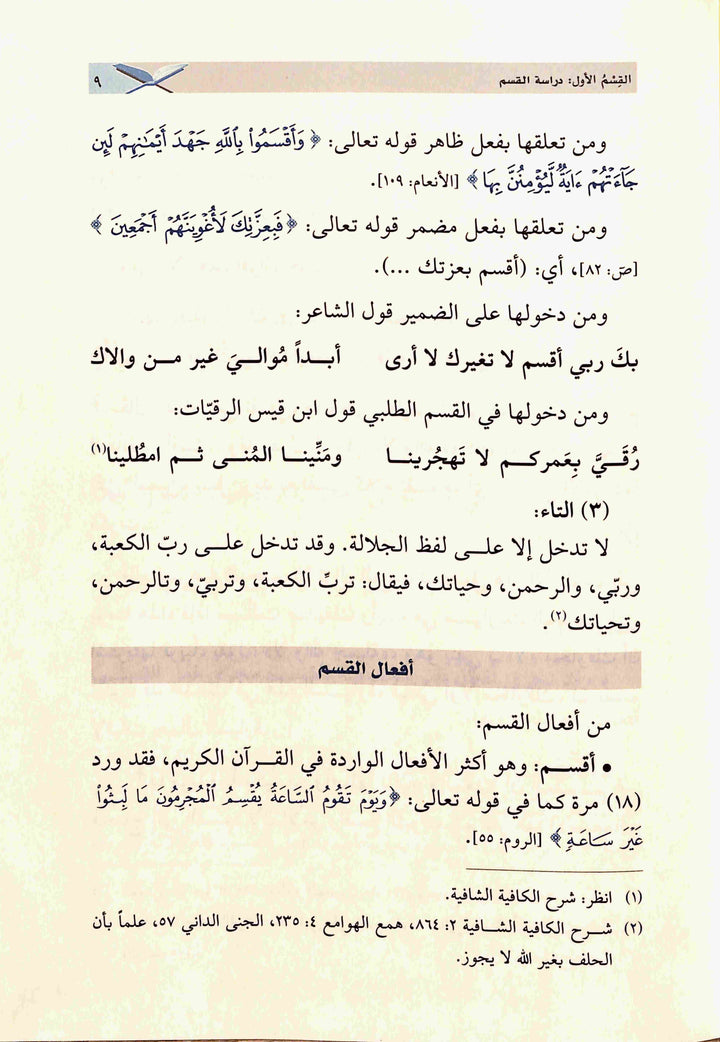 القِسْمُ الأول: دراسة القسم ٩
ومن تعلقها بفعل ظاهر قوله تعالى: ﴿وَأَقْسَمُوا۟ بِٱللَّهِ جَهْدَ أَيْمَـٰنِهِمْ لَئِن
جَآءَتْهُمْ ءَايَةٌ لَّيُؤْمِنُنَّ بِهَا﴾ [الأنعام: ١٠٩].
ومن تعلقها بفعل مضمر قوله تعالى: ﴿فَبِعِزَّتِكَ لَأُغْوِيَنَّهُمْ أَجْمَعِينَ﴾
[صّ: ٨٢]، أي: (أقسم بعزتك ...).
ومن دخولها على الضمير قول الشاعر:
بكَ ربي أقسم لا تغيرك لا أرى أبـداً مُواليَ غير مـن والاك
ومن دخولها في القسم الطلبي قول ابن قيس الرقيّات:
رُقَيَّ بِعَمركـم لا تَهجُرينـا ومَنِّينـا المُنـى ثـم امطُلينا(١)
(٣) التاء:
لا تدخل إلا علـى لفظ الجلالة. وقد تدخل علـى ربّ الكعبة،
وربّي، والرحمن، وحياتك، فيقال: تربِّ الكعبة، وتربيّ، وتالرحمن،
وتحياتك(٢).
أفعال القسم
من أفعال القسم:
• أقســم: وهو أكثر الأفعال الواردة في القـرآن الكريم، فقد ورد
(١٨) مرة كما في قوله تعالى: ﴿وَيَوْمَ تَقُومُ ٱلسَّاعَةُ يُقْسِمُ ٱلْمُجْرِمُونَ مَا لَبِثُوا۟
غَيْرَ سَاعَةٍ﴾ [الروم: ٥٥].
(١) انظر: شرح الكافية الشافية.
(٢) شـرح الكافية الشـافية ٢: ٨٦٤، همع الهوامع ٤: ٢٣٥، الجنى الداني ٥٧، علماً بأن
الحلف بغير الله لا يجوز.